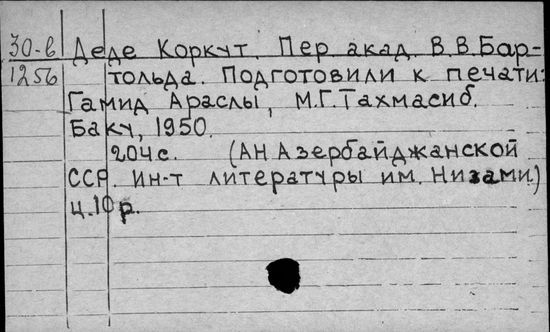 30-в Деде Коркут. Пер акад. В.В.Бар-
1256 тольда. Подготовили к печати:
Гамид Араслы, М.Г.Тахмасиб.
Баку, 1950.
204с. (АН Азербайджанской
ССР. Ин-т литературы им. Низами.)
ц.10р.